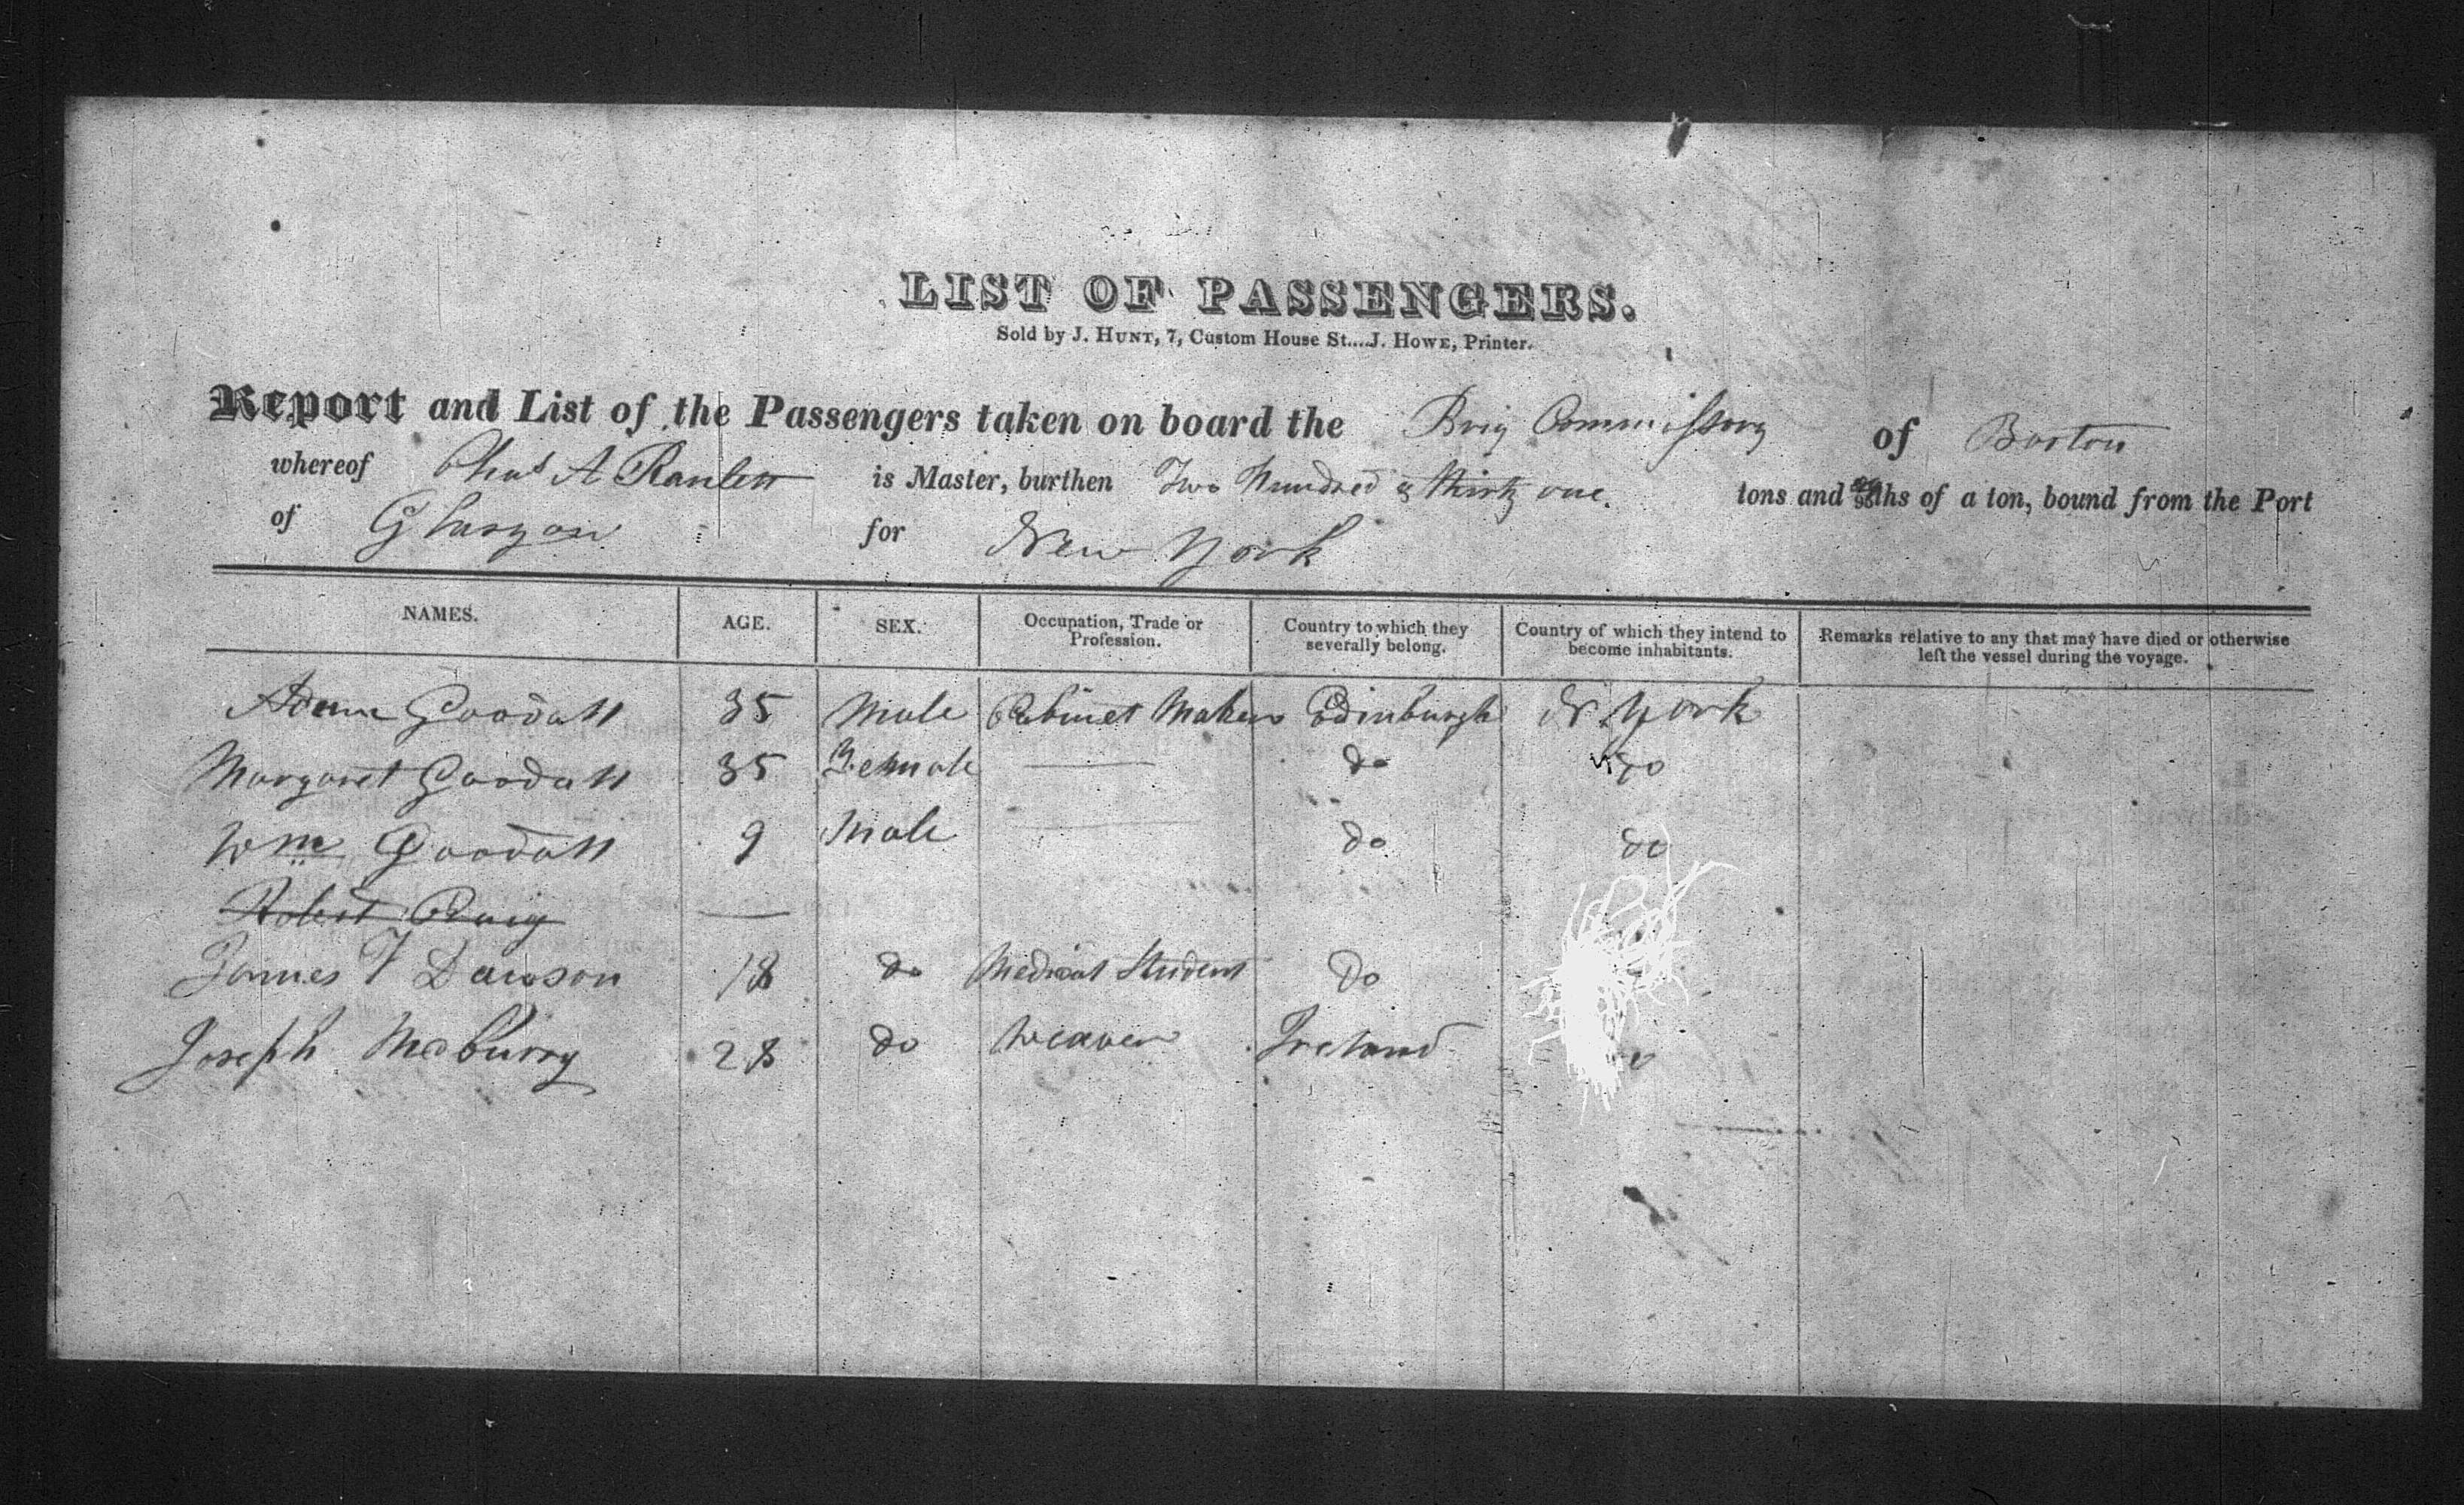 LIST OF PASSENGERS.
Sold by J. HUNT, 7, Custom House St....J. HOWE, Printer.
Report and List of the Passengers taken on board the Brig Commissary of Boston
whereof Chas A Ranlett is Master, burthen Two Hundred & thirty one tons and 95ths of a ton, bound from the Port
of Glasgow for New York
NAMES. AGE. SEX. Occupation, Trade or Profession. Country to which they severally belong. Country of which they intend to become inhabitants. Remarks relative to any that may have died or otherwise left the vessel during the voyage.
Adam Goodall 35 Male Cabinet Maker Edinburgh N. York
Margaret Goodall 35 Female do do
Wm Goodall 9 Male do do
Robert Craig
James T Dawson 18 do Medical Student Do
Joseph 28 do Weaver Ireland